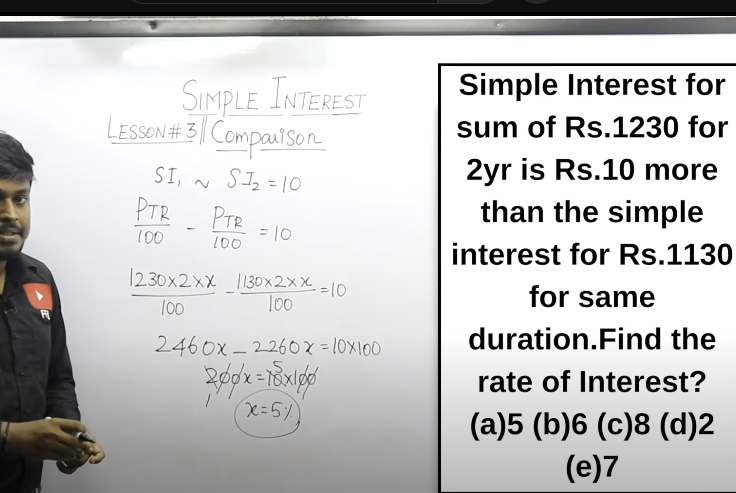 SIMPLE INTEREST
LESSON#3||Comparison
S.I₁ ~ S.I₂ = 10
PTR/100 - PTR/100 = 10
1230×2×x/100 - 1130×2×x/100 = 10
2460x - 2260x = 10×100
200x = 10×100
1 5
x=5%
Simple Interest for
sum of Rs.1230 for
2yr is Rs.10 more
than the simple
interest for Rs.1130
for same
duration.Find the
rate of Interest?
(a)5 (b)6 (c)8 (d)2
(e)7